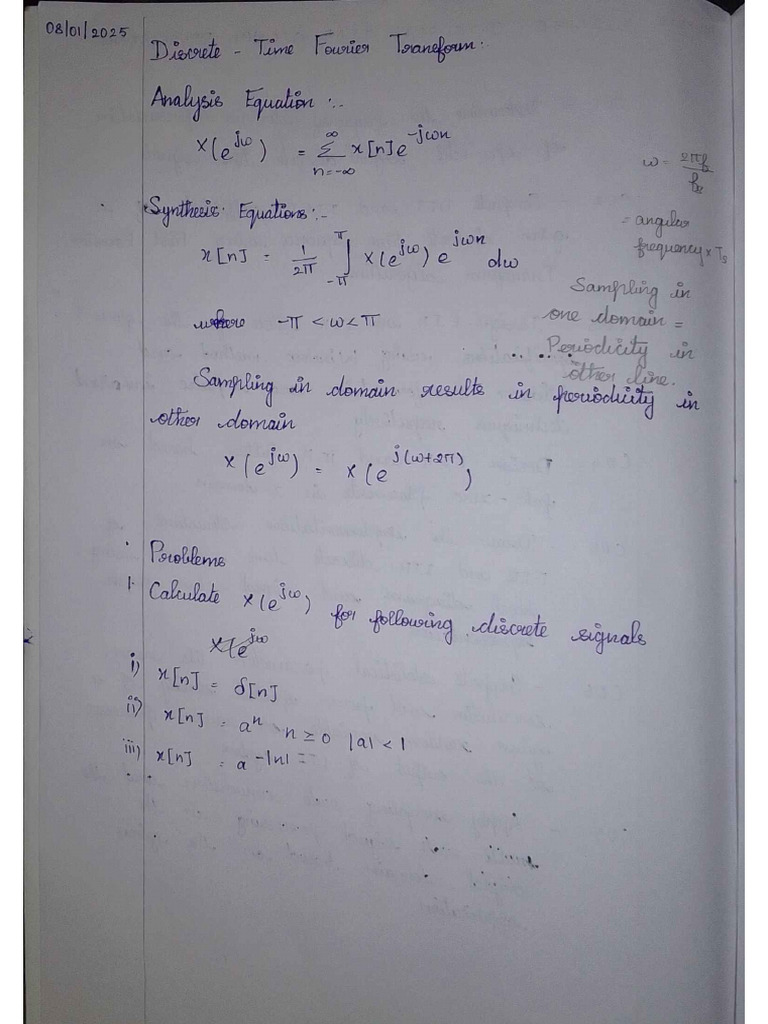 08/01/2025
Discrete - Time Fourier Transform:
Analysis Equation :-
X(e^{jω}) = Σ_{n=-∞}^{∞} x[n] e^{-jωn}
ω = 2πf/fs
= angular frequency × Ts
Synthesis Equations:-
x[n] = 1/2π ∫_{-π}^{π} X(e^{jω}) e^{jωn} dω
where -π < ω < π
Sampling in
one domain =
Periodicity in
other line.
Sampling in domain results in periodicity in
other domain
X(e^{jω}) = X(e^{j(ω+2π)})
Problems
1. Calculate X(e^{jω}) for following discrete signals
X(e^{jω}
i) x[n] = δ[n]
ii) x[n] = a^n n ≥ 0 |a| < 1
iii) x[n] = a^{-|n|} =